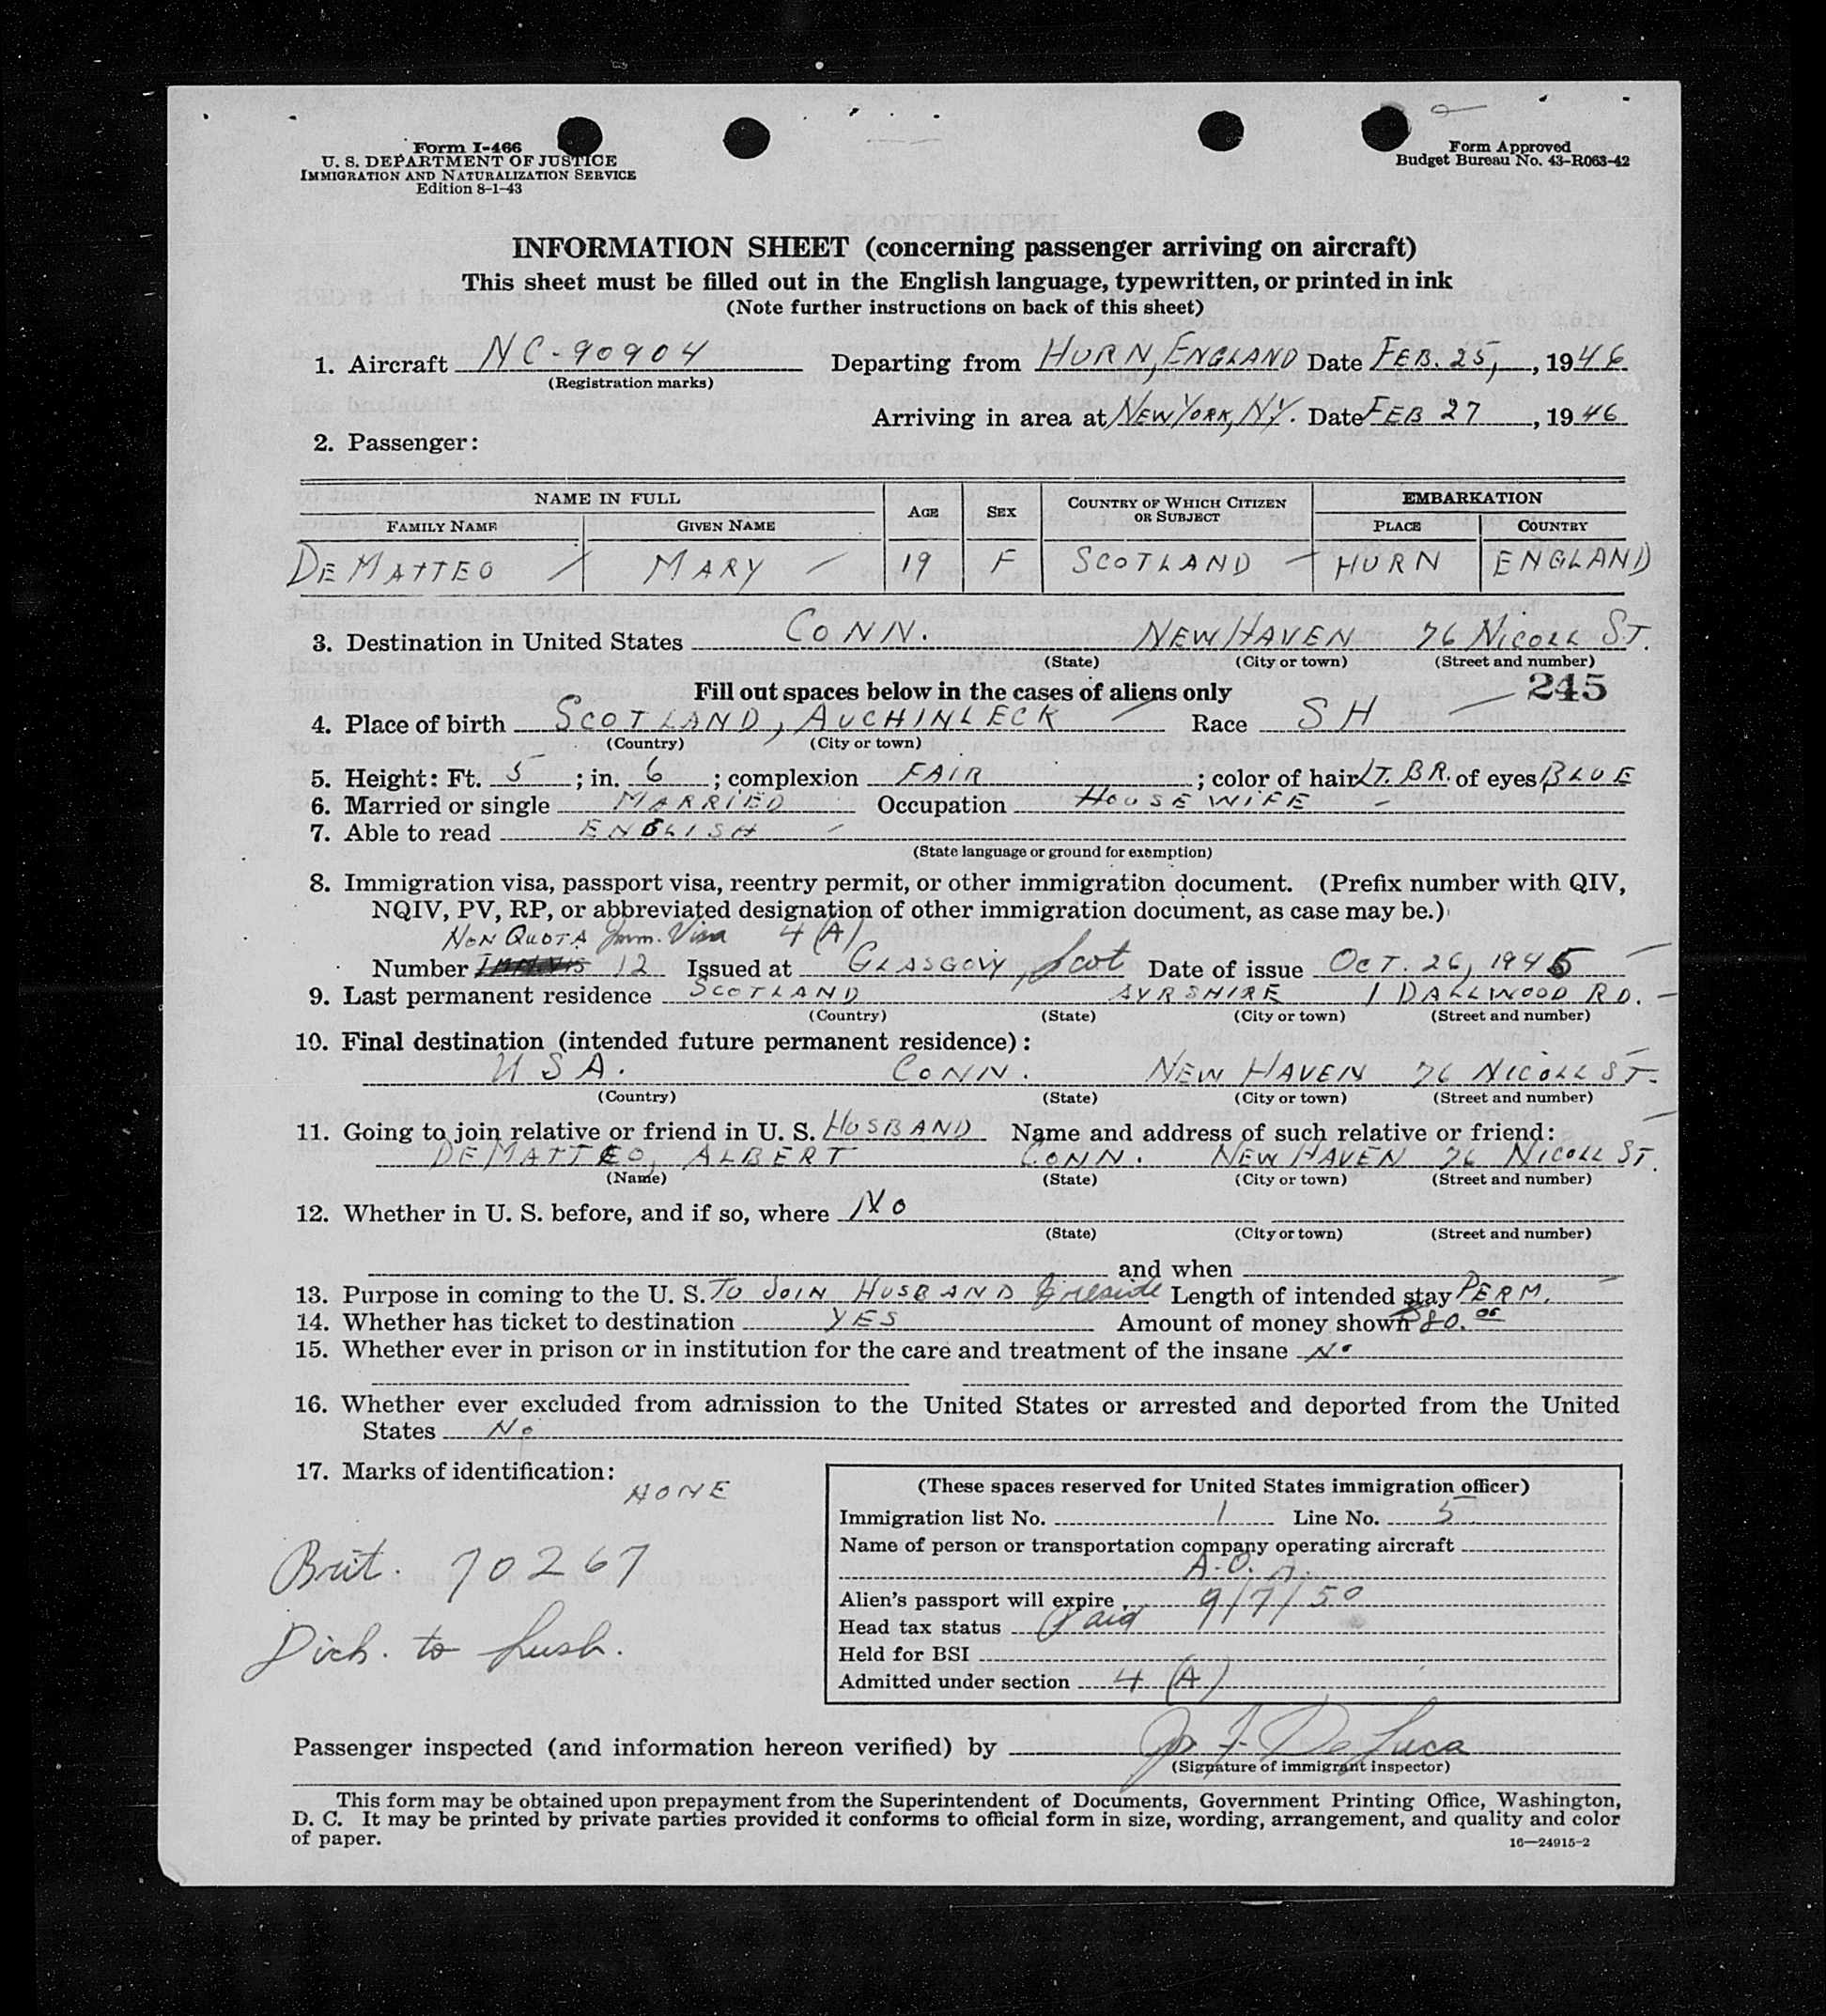 Form I-466
U. S. DEPARTMENT OF JUSTICE
IMMIGRATION AND NATURALIZATION SERVICE
Edition 8-1-43
Form Approved
Budget Bureau No. 43-R063-42
INFORMATION SHEET (concerning passenger arriving on aircraft)
This sheet must be filled out in the English language, typewritten, or printed in ink
(Note further instructions on back of this sheet)
1. Aircraft NC-90904 Departing from HURN, ENGLAND Date FEB. 25, , 1946
(Registration marks)
Arriving in area at NEW YORK, NY. Date FEB 27 , 1946
2. Passenger:
NAME IN FULL AGE SEX COUNTRY OF WHICH CITIZEN OR SUBJECT EMBARKATION
FAMILY NAME GIVEN NAME PLACE COUNTRY
DE MATTEO MARY 19 F SCOTLAND HURN ENGLAND
3. Destination in United States CONN. NEW HAVEN 76 NICOLL ST.
(State) (City or town) (Street and number)
Fill out spaces below in the cases of aliens only 245
4. Place of birth SCOTLAND, AUCHINLECK Race SH
(Country) (City or town)
5. Height: Ft. 5 ; in. 6 ; complexion FAIR ; color of hair LT. BR. of eyes BLUE
6. Married or single MARRIED Occupation HOUSEWIFE
7. Able to read ENGLISH
(State language or ground for exemption)
8. Immigration visa, passport visa, reentry permit, or other immigration document. (Prefix number with QIV,
NQIV, PV, RP, or abbreviated designation of other immigration document, as case may be.)
NON QUOTA Imm. Visa 4 (A)
Number 12 Issued at GLASGOW, Scot Date of issue OCT. 26, 1945
9. Last permanent residence SCOTLAND AYRSHIRE 1 DALLWOOD RD.
(Country) (State) (City or town) (Street and number)
10. Final destination (intended future permanent residence):
USA. CONN. NEW HAVEN 76 NICOLL ST.
(Country) (State) (City or town) (Street and number)
11. Going to join relative or friend in U. S. HUSBAND Name and address of such relative or friend:
DE MATTEO, ALBERT CONN. NEW HAVEN 76 NICOLL ST.
(Name) (State) (City or town) (Street and number)
12. Whether in U. S. before, and if so, where NO
(State) (City or town) (Street and number)
and when
13. Purpose in coming to the U. S. TO JOIN HUSBAND & reside Length of intended stay PERM.
14. Whether has ticket to destination YES Amount of money shown $80.00
15. Whether ever in prison or in institution for the care and treatment of the insane No
16. Whether ever excluded from admission to the United States or arrested and deported from the United
States No
17. Marks of identification:
NONE
Brit. 70267
to husb.
(These spaces reserved for United States immigration officer)
Immigration list No. 1 Line No. 5
Name of person or transportation company operating aircraft
A. O. A.
Alien's passport will expire 9/7/50
Head tax status Paid
Held for BSI
Admitted under section 4 (A)
Passenger inspected (and information hereon verified) by F. De Luca
(Signature of immigrant inspector)
This form may be obtained upon prepayment from the Superintendent of Documents, Government Printing Office, Washington,
D. C. It may be printed by private parties provided it conforms to official form in size, wording, arrangement, and quality and color
of paper.
16—24915-2